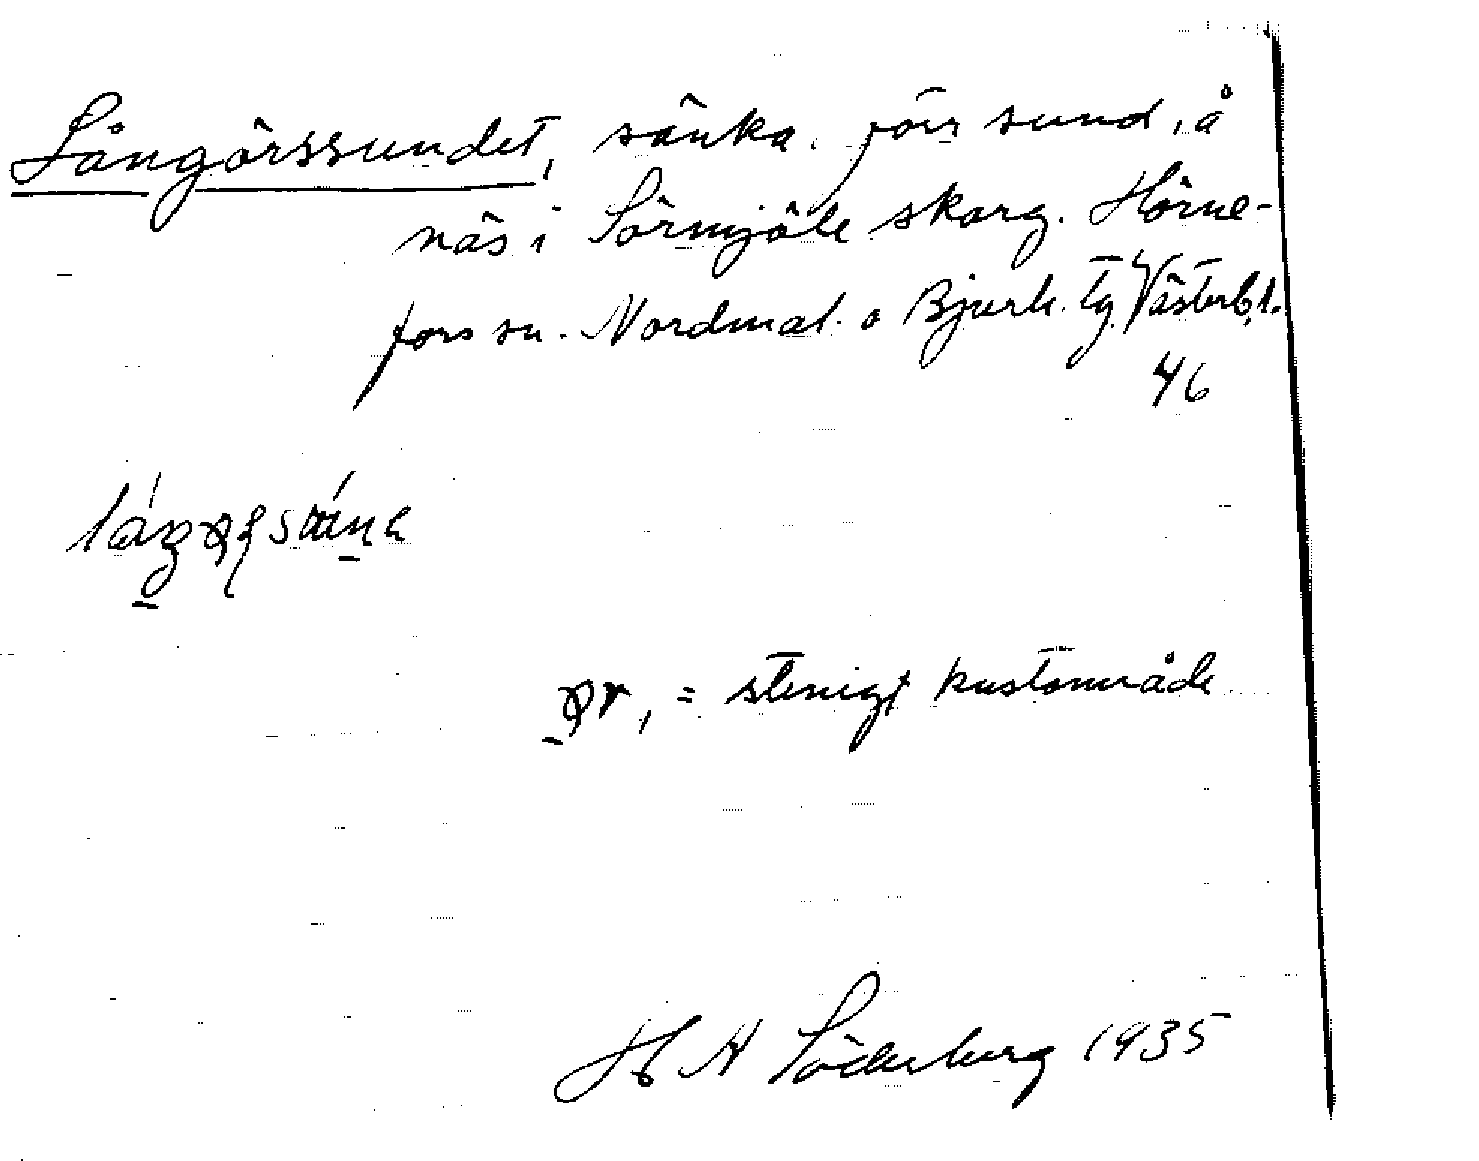 Långörssundet, sänka. förr sund, å
näs i Sörmjöle skärg. Hörne-
fors sn. Nordmal. o Bjurh. tg Västerb. l.
46
= stenigt kustområde
H A Söderberg 1935